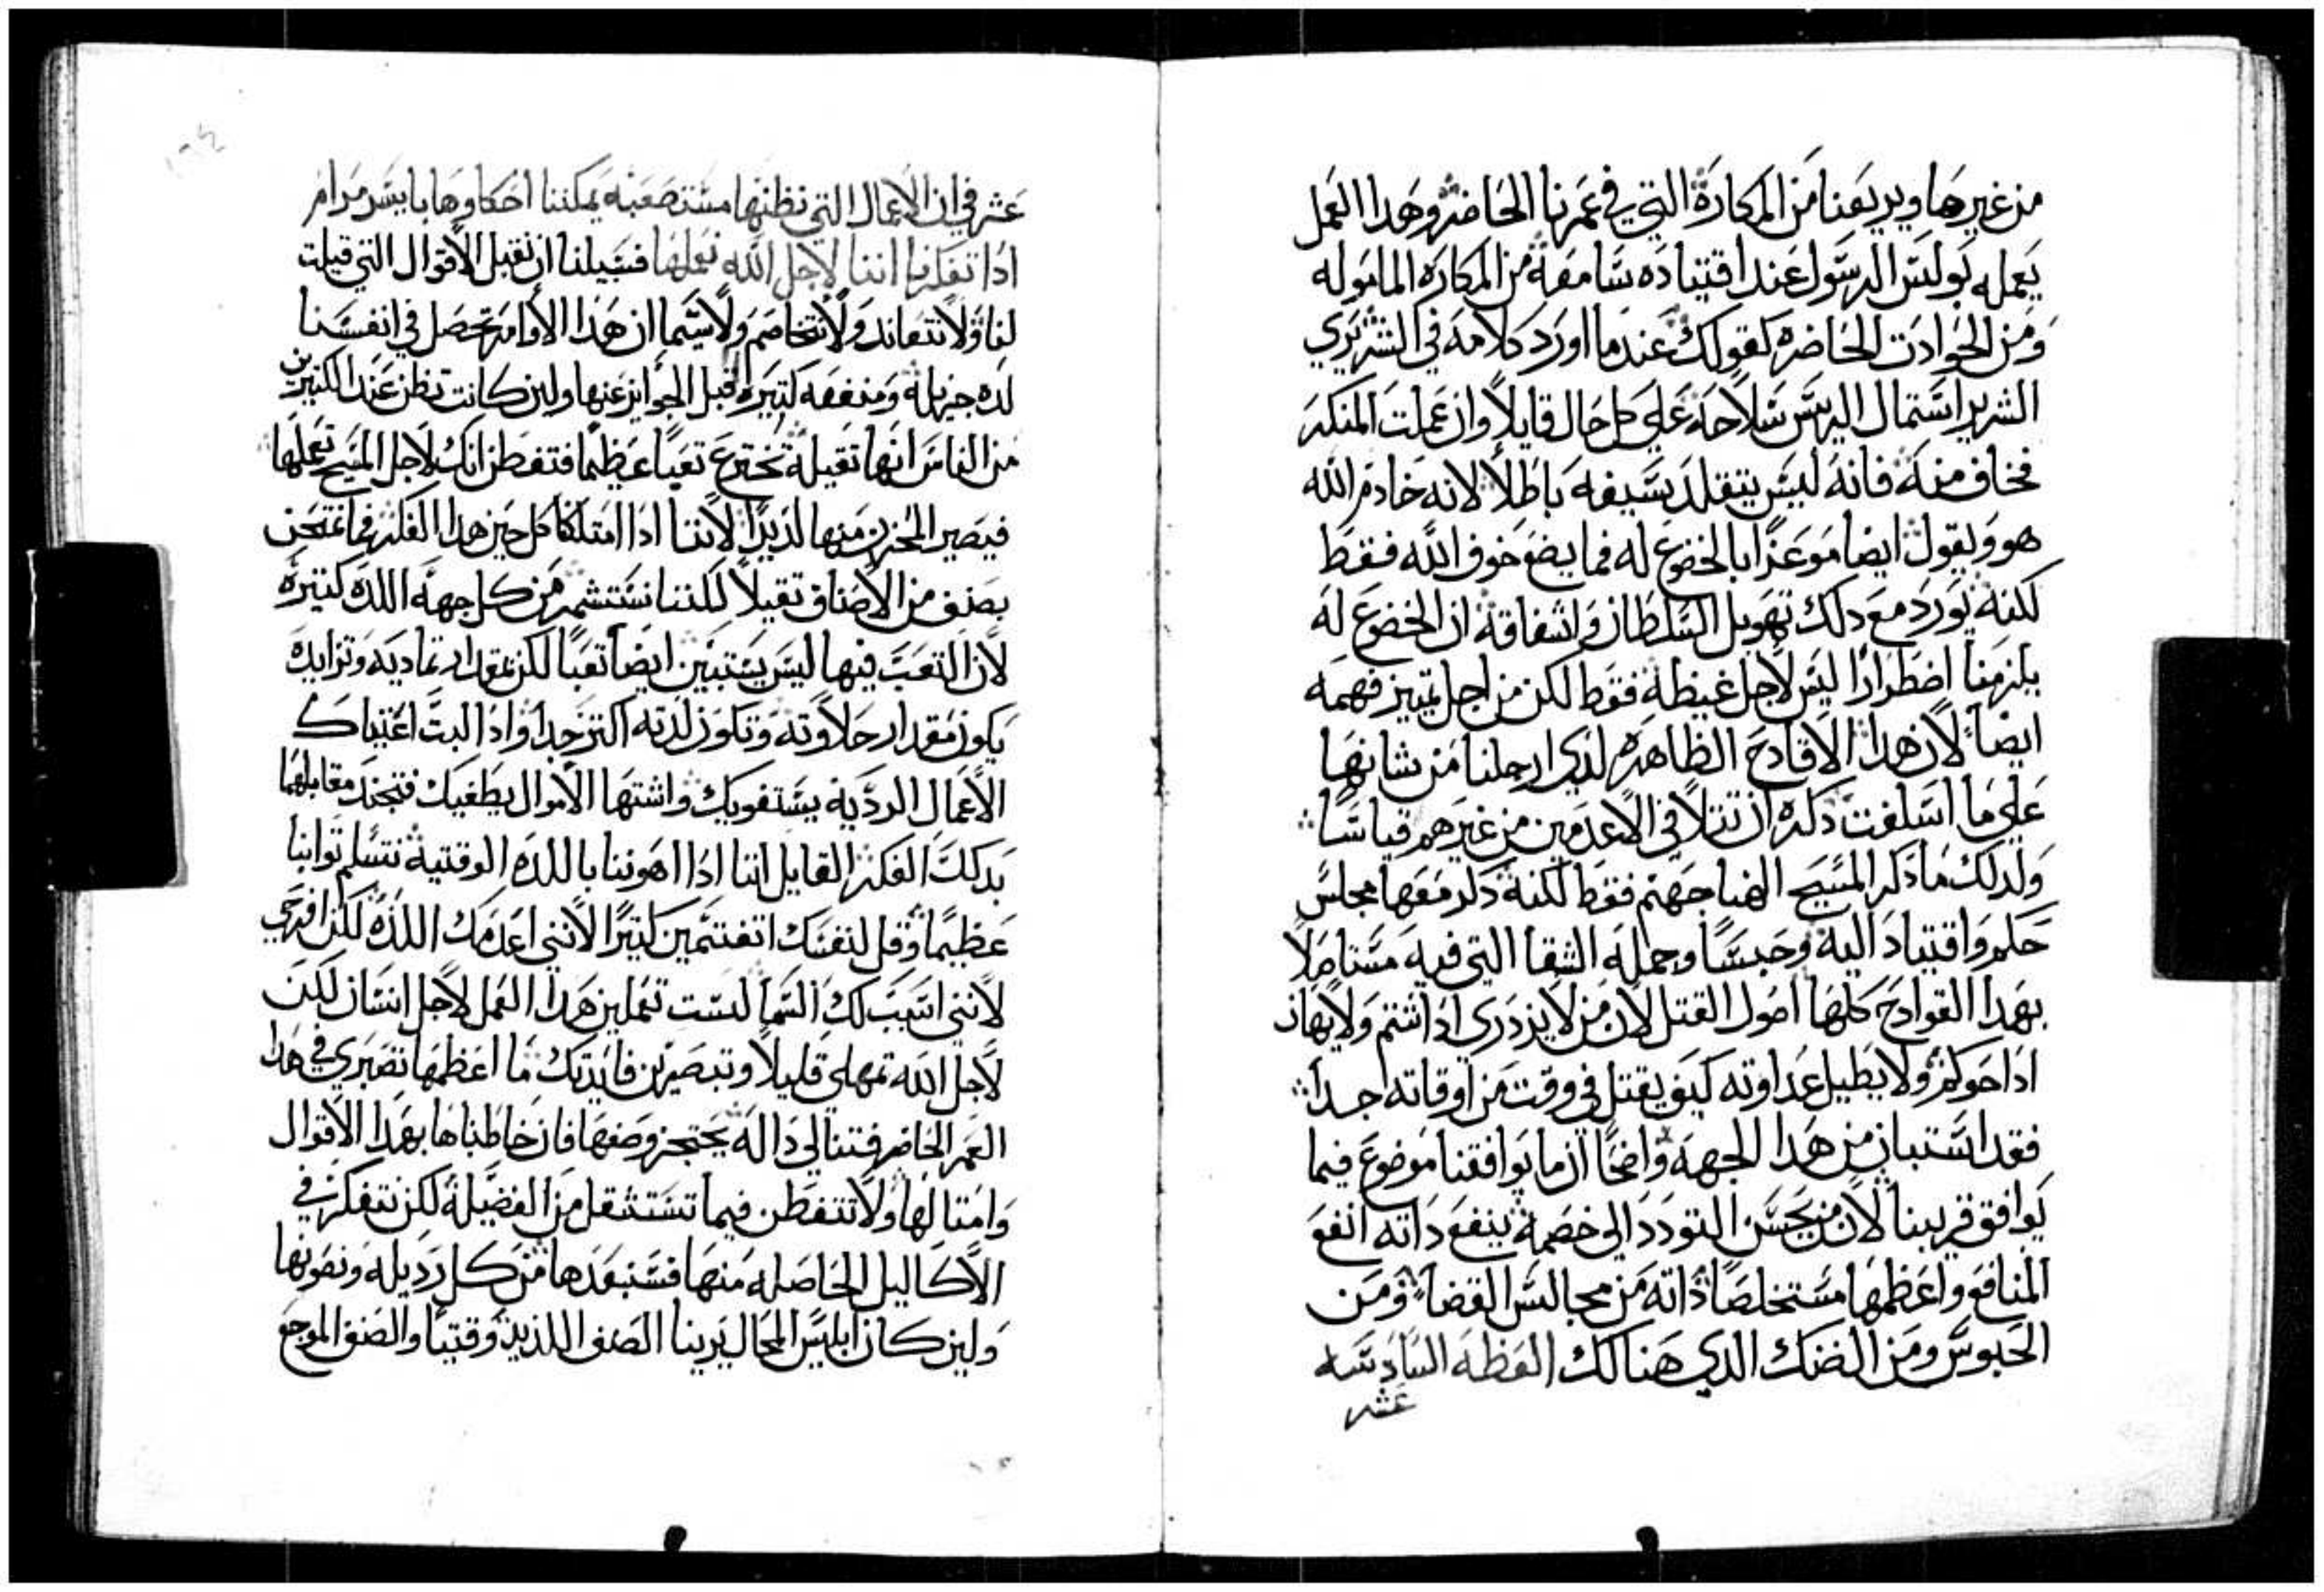 من غيرها ويريعنا من المكارة التي في عمرنا الحاضر وهدا العمل
يعمله بولس الرسول عند اقتياده سامعه من المكاره الماموله
ومن الحوادت الحاضره كقولك عندما اورد كلامه في الشريري
الشرير استمال اليس سلاحه على كل حال قايلاً وان عملت المنكر
فخاف منه فانه ليس يتقلد بسيفه باطلاً لانه خادم الله
هو ويقول ايضا موعزًا بالخضوع له فما يضع خوف الله فقط
لكنه يورد مع دلك تهويل السلطان واشفاقه ان الخضوع له
يلزمنا اضطرارًا ليس لاجل غيظه فقط لكن من اجل تمييز فهمه
ايضاً لان هدا الاقادح الظاهره لدي ارجلنا من شانها
على ما اسلفت دكره ان تتلا في الاعدمين من غيرهم قياسًا
ولدلك ما ذكر المسيح الهنا جهنم فقط لكنه دكر معها مجلس
حكم واقتياد اليه وحبسًا وجملة الشقا التي فيه مستاصلاً
بهدا القوادح كلها اصول القتل لان من لا يزدري ادا شتم ولا يهان
ادا حوكم ولا يطيل عداوته كيف يقتل في وقت من اوقاته جداً
فقد استبان من هدا الجهه واضحًا ان ما يوافقنا موضوع فيما
يوافق قريبنا لان من يحسن التودد الى خصمه ينفع داته انفع
المنافع واعظمها مستخلصًا ذاته من مجالس القضا ومن
الحبوس ومن الضنك الدي هنالك العظه السادسه
عشر
عشر في ان الاعمال التي نظنها مستصعبه يمكننا احكاوها بايسر مرام
ادا تفكرنا اننا لاجل الله نعملها فسبيلنا ان نقبل الاقوال التي قيلت
لنا ولا نتعاند ولا نتخاصم ولا سيما ان هذا الاوامر تحصل في انفسنا
لده جزيلة ومنفعه كتيره قبل الجوايز عنها ولين كانت تظن عند الكتيرين
من الناس انها تقيلة تخترع تعبًا عظيما فتفطن انك لاجل المسيح تعملها
فيصير المحزن منها لديدًا لاننا ادا امتلكنا كل حين هدا الفكر فما نمتحن
بصنف من الاصناف تقيلاً لكننا نستثمر من كل جهه اللده كتيره
لان التعب فيها ليس يستبين ايضاً تعبًا لكن بمقدار تماديه وتزايده
يكون مقدار حلاوته وتكون لدته اكتر جدا وادا البت اعتياك
الاعمال الرديه يستغويك واشتها الاموال يطغيك فتجند مقابلهما
بدلك الفكر القايل اننا ادا اهوننا باللده الوقتية نتسلم توابنا
عظيمًا وقل لنفسك اتغتمين كتيرًا لانني اعدمك اللذة لكن افرحي
لانني اسبب لك السما لست تعملين هدا العمل لاجل انسان لكن
لاجل الله تمهلي قليلاً وتبصرين فايدتك ما اعظمها تصبري في هدا
العمر الحاضر فتنالي دالة يحتجز وصفها فان خاطبناها بهدا الاقوال
وامتالها ولا نتفطن فيما تستثقل من الفضيلة لكن نتفكر في
الاكاليل الحاصله منها فسنبعدها من كل رديله ونصونها
ولين كان ابليس المحال يرينا الصنف اللذيذ وقتيًا والصنف الموجع